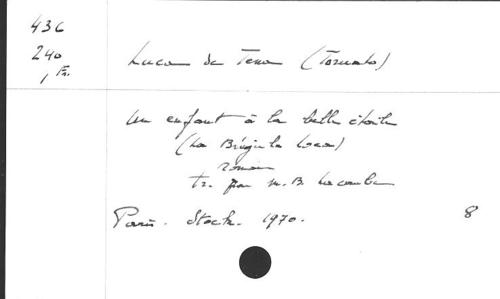 436
240
1 Fr.
Luca de Tena (Torcuato)
Un enfant à la belle étoile
(La Brújula loca)
roman
tr. par M. B. Lacombe
Paris. Stock. 1970.
8